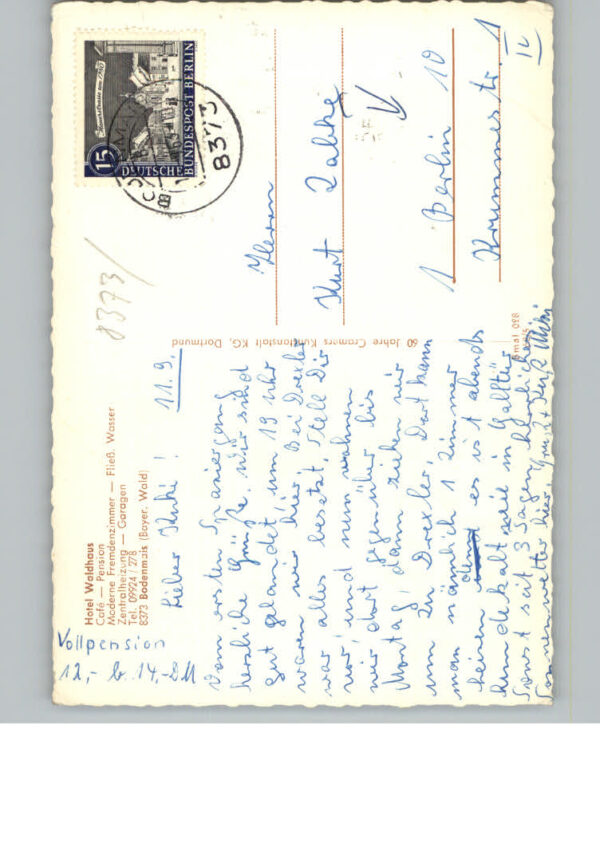 Hotel Waldhaus
Café — Pension
Moderne Fremdenzimmer — Fließ. Wasser
Zentralheizung — Garagen
Tel. 09924/278
8373 Bodenmais (Bayer. Wald)
Vollpension
12,- b. 14,- DM
11.9.
Lieber Kuki!
Vom ersten Spaziergang
herzliche Grüße. Wir sind
gut gelandet, um 19 Uhr
waren wir hier. Bei Drexler
war alles besetzt, stell Dir
vor, und nun wohnen
wir dort gegenüber bis
Montag, dann ziehen wir
um zu Drexler. Dort kann
man nämlich 1 Zimmer
heizen denn es ist abends
hundekalt weil in
Sonst seit 3 Tagen herrliches
Sonnenwetter hier.
60 Jahre Cramers Kunstanstalt KG, Dortmund
8373/
15
DEUTSCHE
BUNDESPOST BERLIN
8373
Herrn
Kurt
1 Berlin 10
Krummestr. 1
IV